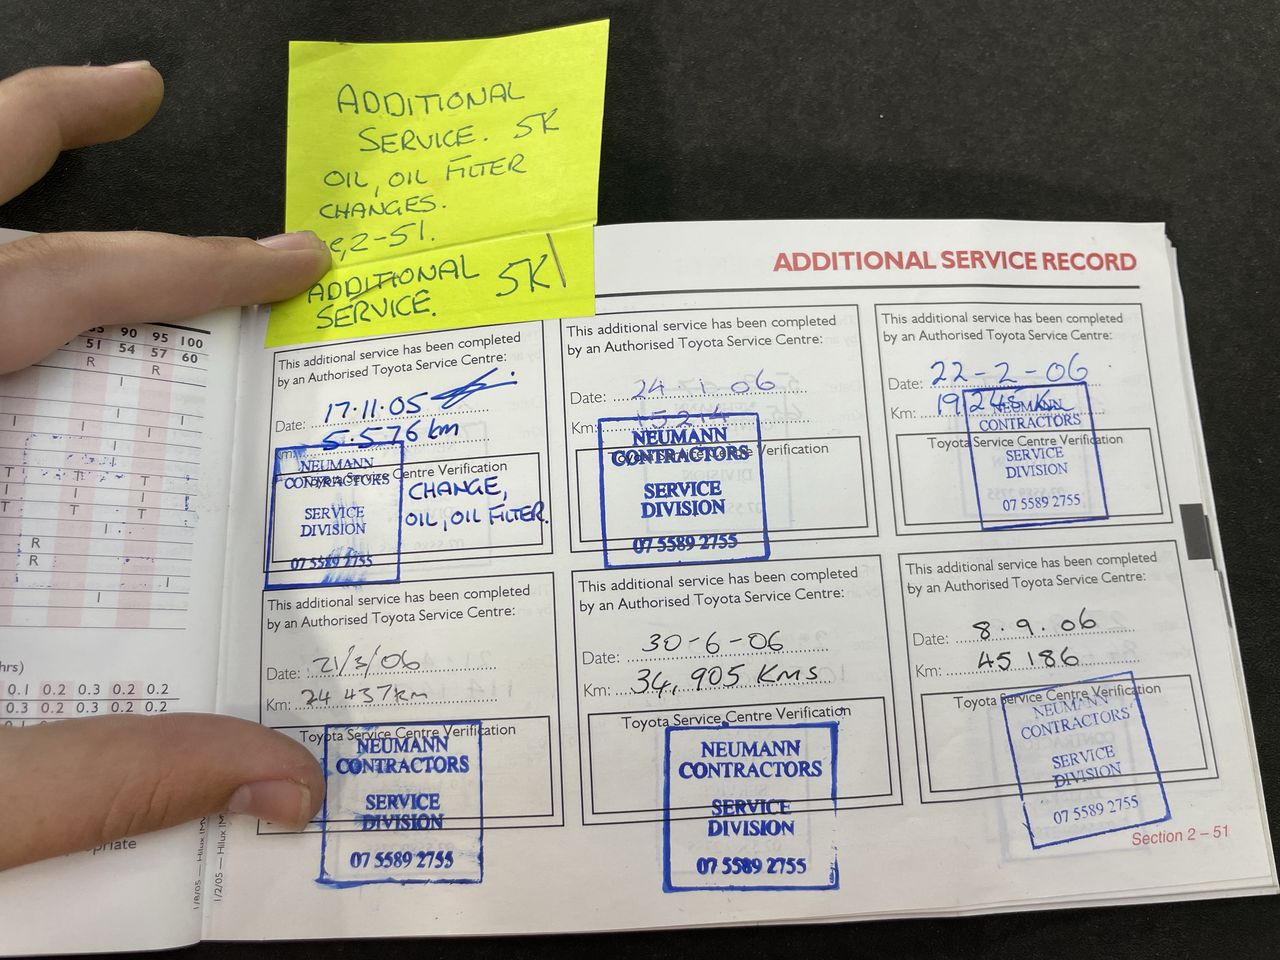 ADDITIONAL
SERVICE. 5K
OIL, OIL FILTER
CHANGES.
2-51.
ADDITIONAL 5K
SERVICE.
ADDITIONAL SERVICE RECORD
This additional service has been completed
by an Authorised Toyota Service Centre:
Date: 17.11.05
5.576 km
Toyota Service Centre Verification
NEUMANN
CONTRACTORS
SERVICE
DIVISION
07 5589 2755
CHANGE,
OIL, OIL FILTER.
This additional service has been completed
by an Authorised Toyota Service Centre:
Date: 24.1.06
Km: 15214
Toyota Service Centre Verification
NEUMANN
CONTRACTORS
SERVICE
DIVISION
07 5589 2755
This additional service has been completed
by an Authorised Toyota Service Centre:
Date: 22-2-06
Km:
Toyota Service Centre Verification
NEUMANN
CONTRACTORS
SERVICE
DIVISION
07 5589 2755
This additional service has been completed
by an Authorised Toyota Service Centre:
Date: 21/3/06
Km: 24 437km
Toyota Service Centre Verification
NEUMANN
CONTRACTORS
SERVICE
DIVISION
07 5589 2755
This additional service has been completed
by an Authorised Toyota Service Centre:
Date: 30-6-06
Km: 34,905 Kms
Toyota Service Centre Verification
NEUMANN
CONTRACTORS
SERVICE
DIVISION
07 5589 2755
This additional service has been completed
by an Authorised Toyota Service Centre:
Date: 8.9.06
Km: 45 186
Toyota Service Centre Verification
NEUMANN
CONTRACTORS
SERVICE
DIVISION
07 5589 2755
Section 2 – 51
90 95 100
51 54 57 60
R R
I
I I
I I
T T
I I I
T T T
I
R
R
I
I
hrs)
0.1 0.2 0.3 0.2 0.2
0.3 0.2 0.2 0.2 0.2
1/8/05 — Hilux
1/2/05 — Hilux